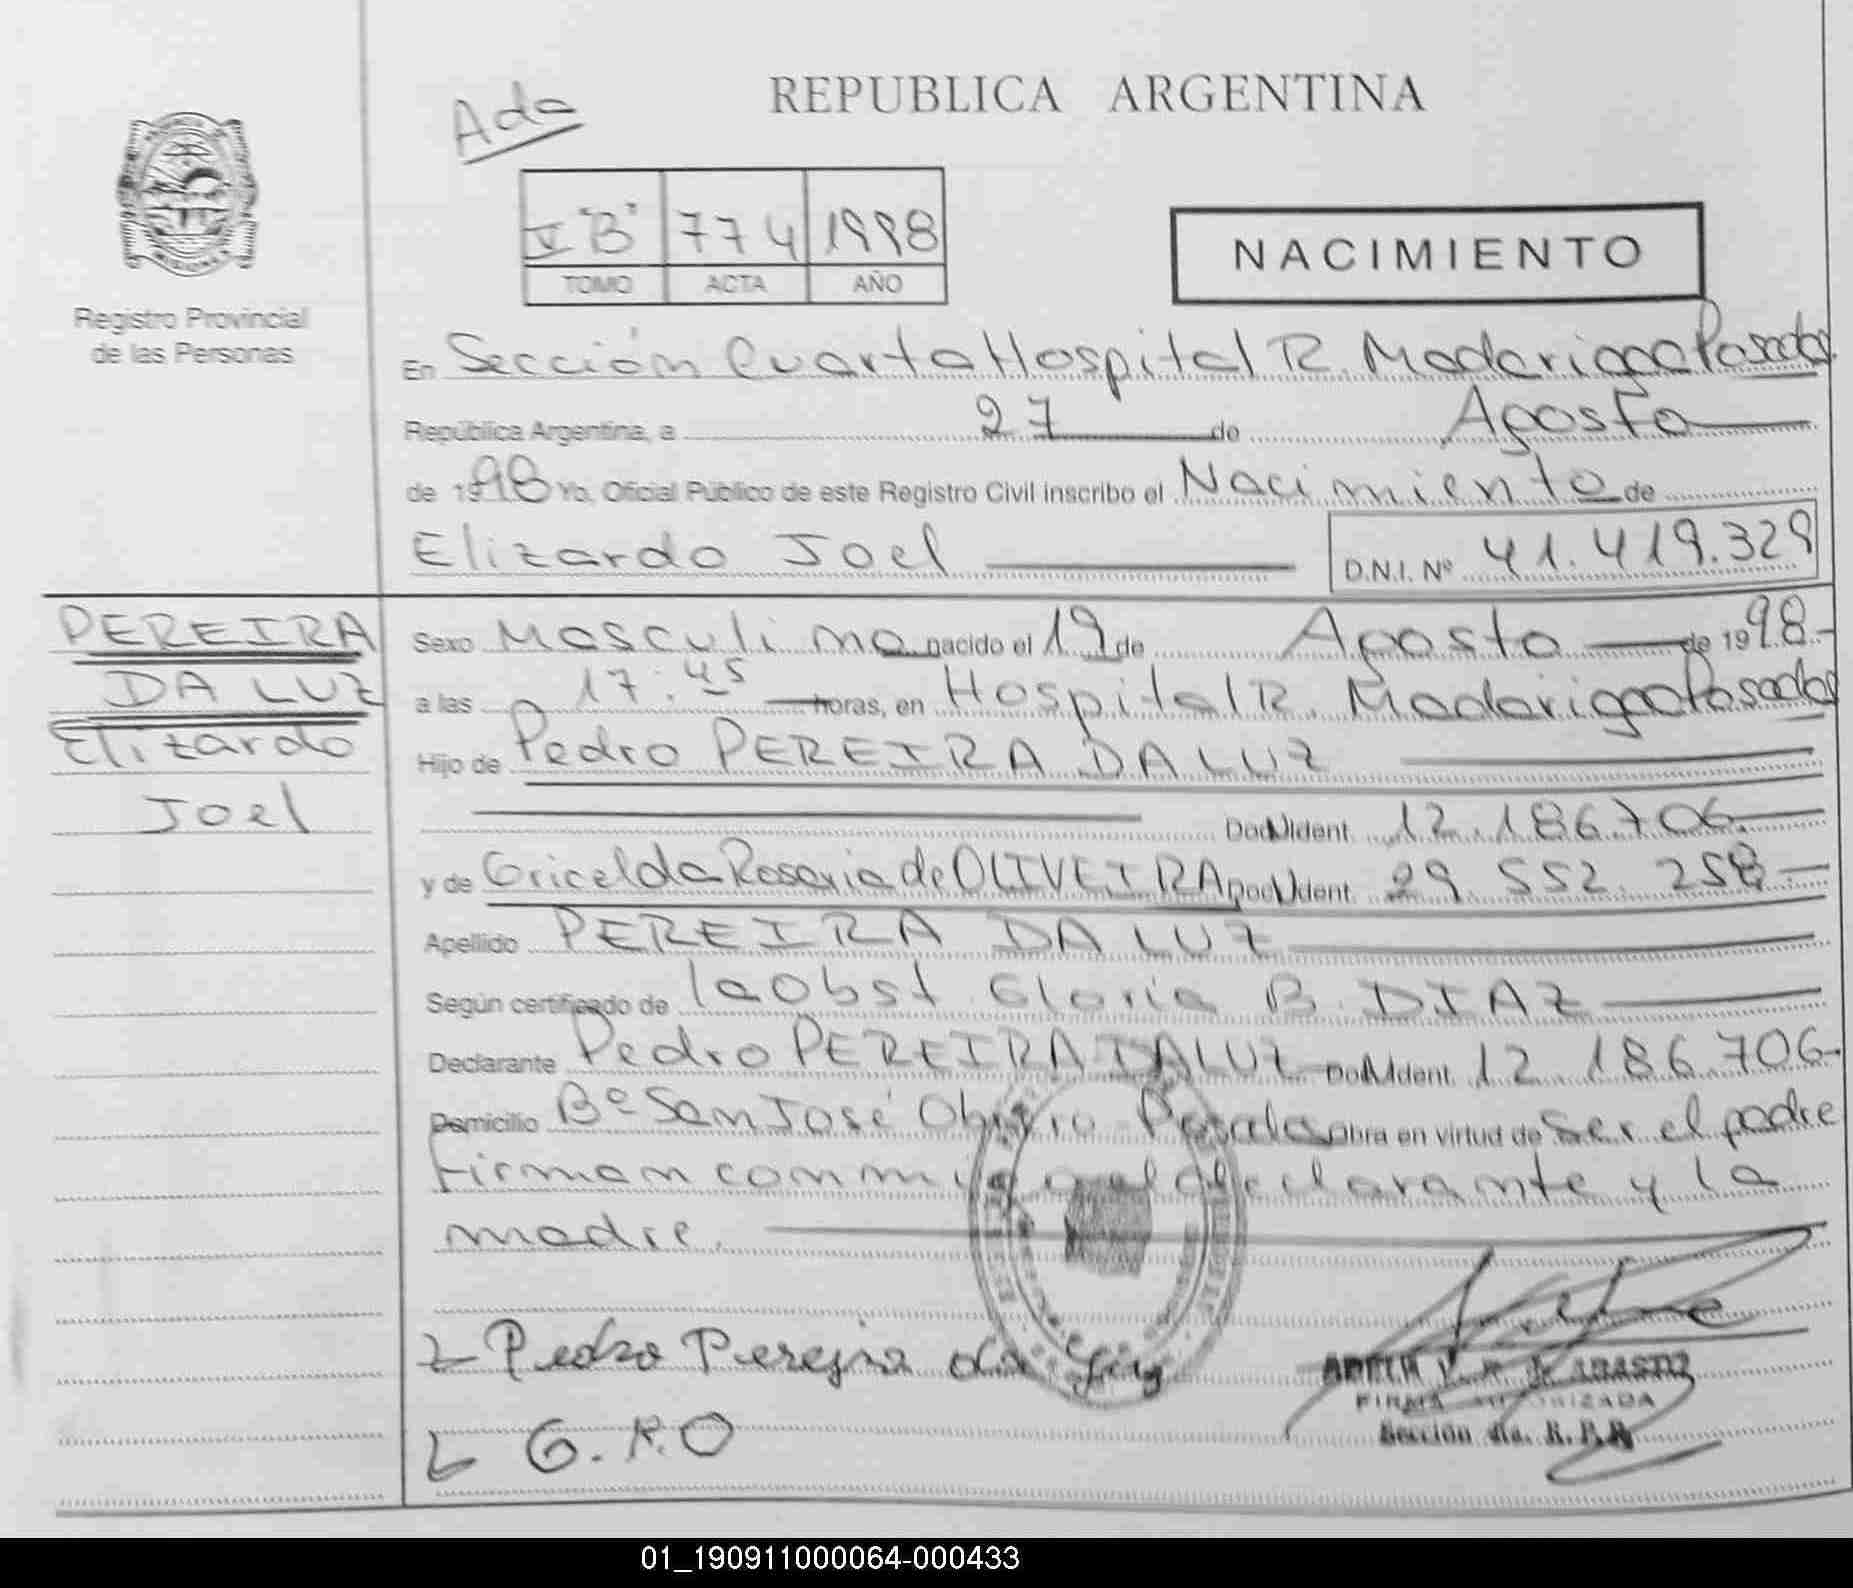 REPUBLICA ARGENTINA
Ada
V "B" 774 1998
TOMO ACTA AÑO
NACIMIENTO
MISIONES
Registro Provincial
de las Personas
En Sección Cuarta Hospital R. Madariaga Posadas
República Argentina, a 27 de Agosto
de 1998 Yo, Oficial Público de este Registro Civil inscribo el Nacimiento de
Elizardo Joel D.N.I. Nº 41.419.329
PEREIRA
DA LUZ
Elizardo
Joel
Sexo Masculino nacido el 19 de Agosto de 1998.-
a las 17:45 horas, en Hospital R. Madariaga Posadas
Hijo de Pedro PEREIRA DA LUZ
Doc. Ident. 12.186.706.
y de Gricelda Rosaria de OLIVEIRA Doc. Ident. 29.552.258
Apellido PEREIRA DA LUZ
Según certificado de la Obst. Gloria B. DIAZ
Declarante Pedro PEREIRA DA LUZ Doc. Ident. 12.186.706.
Domicilio Bº San José Obrero Posadas Obra en virtud de ser el padre
firman conmigo el declarante y la
madre.
Pedro Pereira da Luz
G. R. O
FIRMA AUTORIZADA
Sección 4ta. R. P. P.
01_190911000064-000433